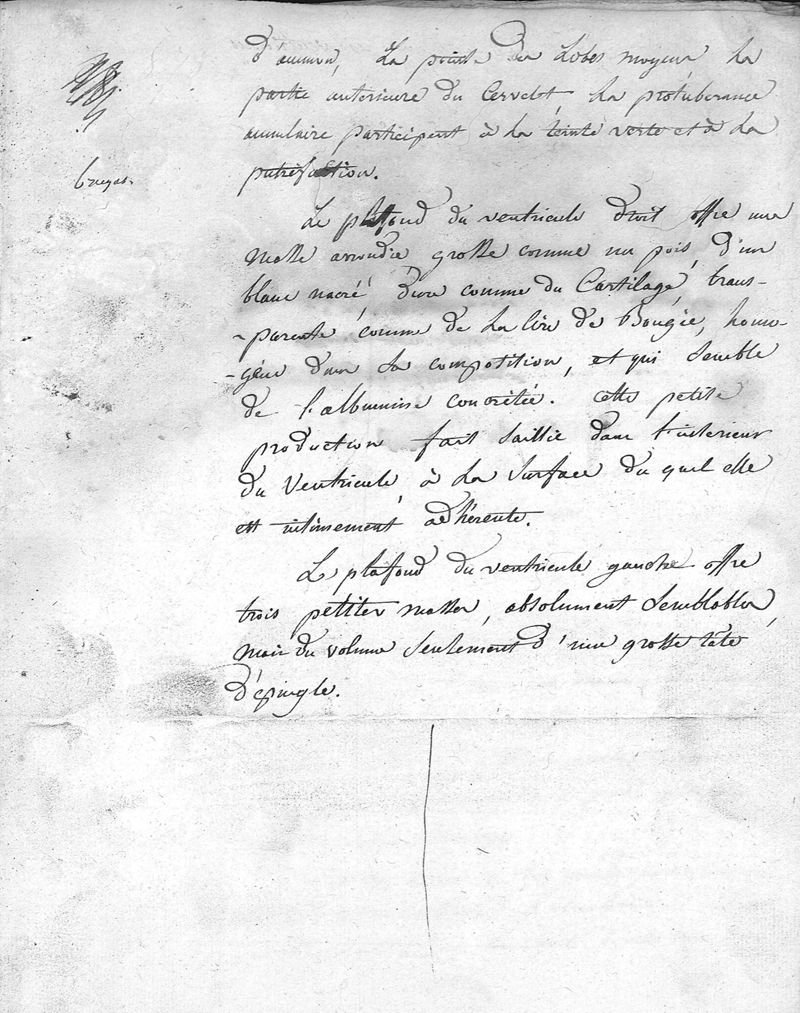 d'ammon, La pointe des Lobes moyens, La
partie anterieure du Cervelet, La protuberance
annulaire participent à La teinte verte et à La
putréfaction.
Le plafond du ventricule droit offre une
masse arrondie grosse comme un pois, d'un
blanc nacré, dure comme du Cartilage, trans-
-parente comme de La Cire de Bougie, homo-
-gène dans sa composition, et qui semble
de l'albumine concrétée. Cette petite
production fait saillie dans l'interieur
du Ventricule, à La surface du quel elle
est intimement adhérente.
Le plafond du ventricule gauche offre
trois petites masses, absolument semblables,
mais du volume seulement d'une grosse tête
d'épingle.